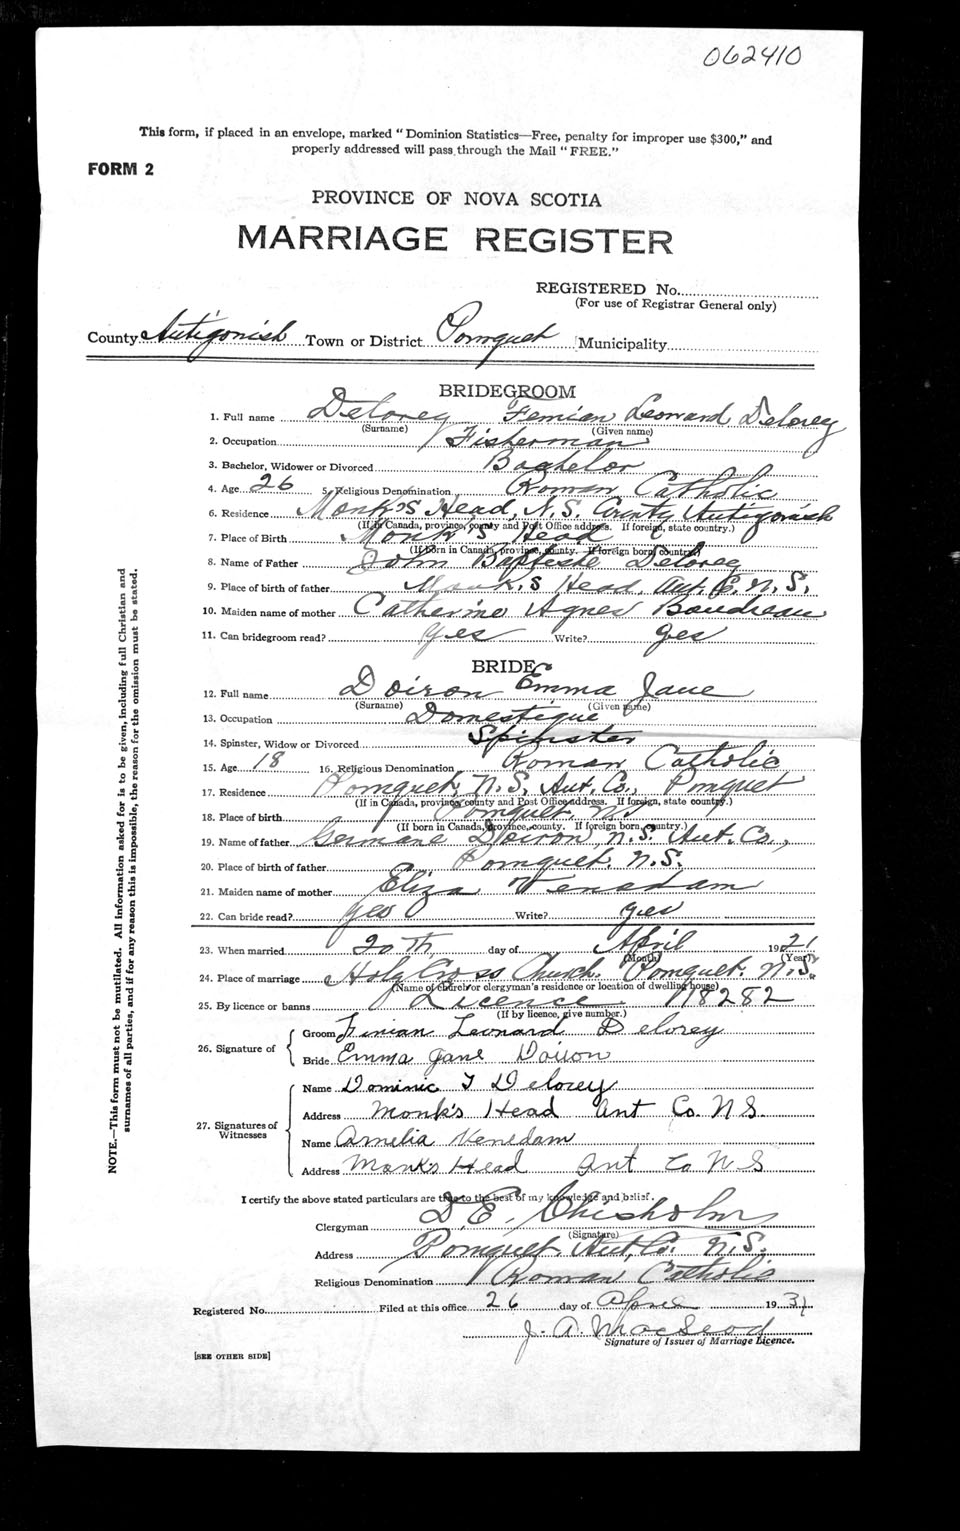 062410
This form, if placed in an envelope, marked "Dominion Statistics—Free, penalty for improper use $300," and
properly addressed will pass through the Mail "FREE."
FORM 2
PROVINCE OF NOVA SCOTIA
MARRIAGE REGISTER
REGISTERED No.
(For use of Registrar General only)
County Antigonish Town or District Pomquet Municipality
BRIDEGROOM
1. Full name Delorey Femian Leonard Delorey
(Surname) (Given name)
2. Occupation Fisherman
3. Bachelor, Widower or Divorced Baghelor
4. Age 26 5. Religious Denomination Roman Catholic
6. Residence Monk's Head, N.S. County Antigonish
(If in Canada, province, county and Post Office address. If foreign, state country.)
7. Place of Birth Monk's Head
(If born in Canada, province, county. If foreign born, country)
8. Name of Father John Baptiste Delorey
9. Place of birth of father Monk's Head, Ant. C. N. S.
10. Maiden name of mother Catherine Agnes Boudreau
11. Can bridegroom read? yes Write? yes
BRIDE
12. Full name Doiron Emma Jane
(Surname) (Given name)
13. Occupation Domestique
14. Spinster, Widow or Divorced Spinster
15. Age 18 16. Religious Denomination Roman Catholic
17. Residence Pomquet, N.S. Ant. Co., Pomquet
(If in Canada, province, county and Post Office address. If foreign, state country.)
18. Place of birth Pomquet, N.S.
(If born in Canada, province, county. If foreign born, country.)
19. Name of father Germane Doiron, N.S. Ant. Co.,
20. Place of birth of father Pomquet, N.S.
21. Maiden name of mother Eliza Venedam
22. Can bride read? yes Write? yes
23. When married 20th, day of April 1921
(Month) (Year)
24. Place of marriage Holy Cross Church. Pomquet. N.S.
(Name of church or clergyman's residence or location of dwelling house)
25. By licence or banns Licence 118282
(If by licence, give number.)
26. Signature of
Groom Finian Leonard Delorey
Bride Emma Jane Doiron
27. Signatures of Witnesses
Name Dominic J Delorey
Address Monk's Head Ant Co. N S.
Name Amelia Venedam
Address Monk's Head Ant Co N S
I certify the above stated particulars are true to the best of my knowledge and belief.
Clergyman D. E. Chisholm
(Signature)
Address Pomquet Ant. Co. N.S.
Religious Denomination Roman Catholic
Registered No. Filed at this office 26 day of April 193
J. A. MacLeod
Signature of Issuer of Marriage Licence.
[SEE OTHER SIDE]
NOTE.—This form must not be mutilated. All information asked for is to be given, including full Christian and
surnames of all parties, and if for any reason this is impossible, the reason for the omission must be stated.